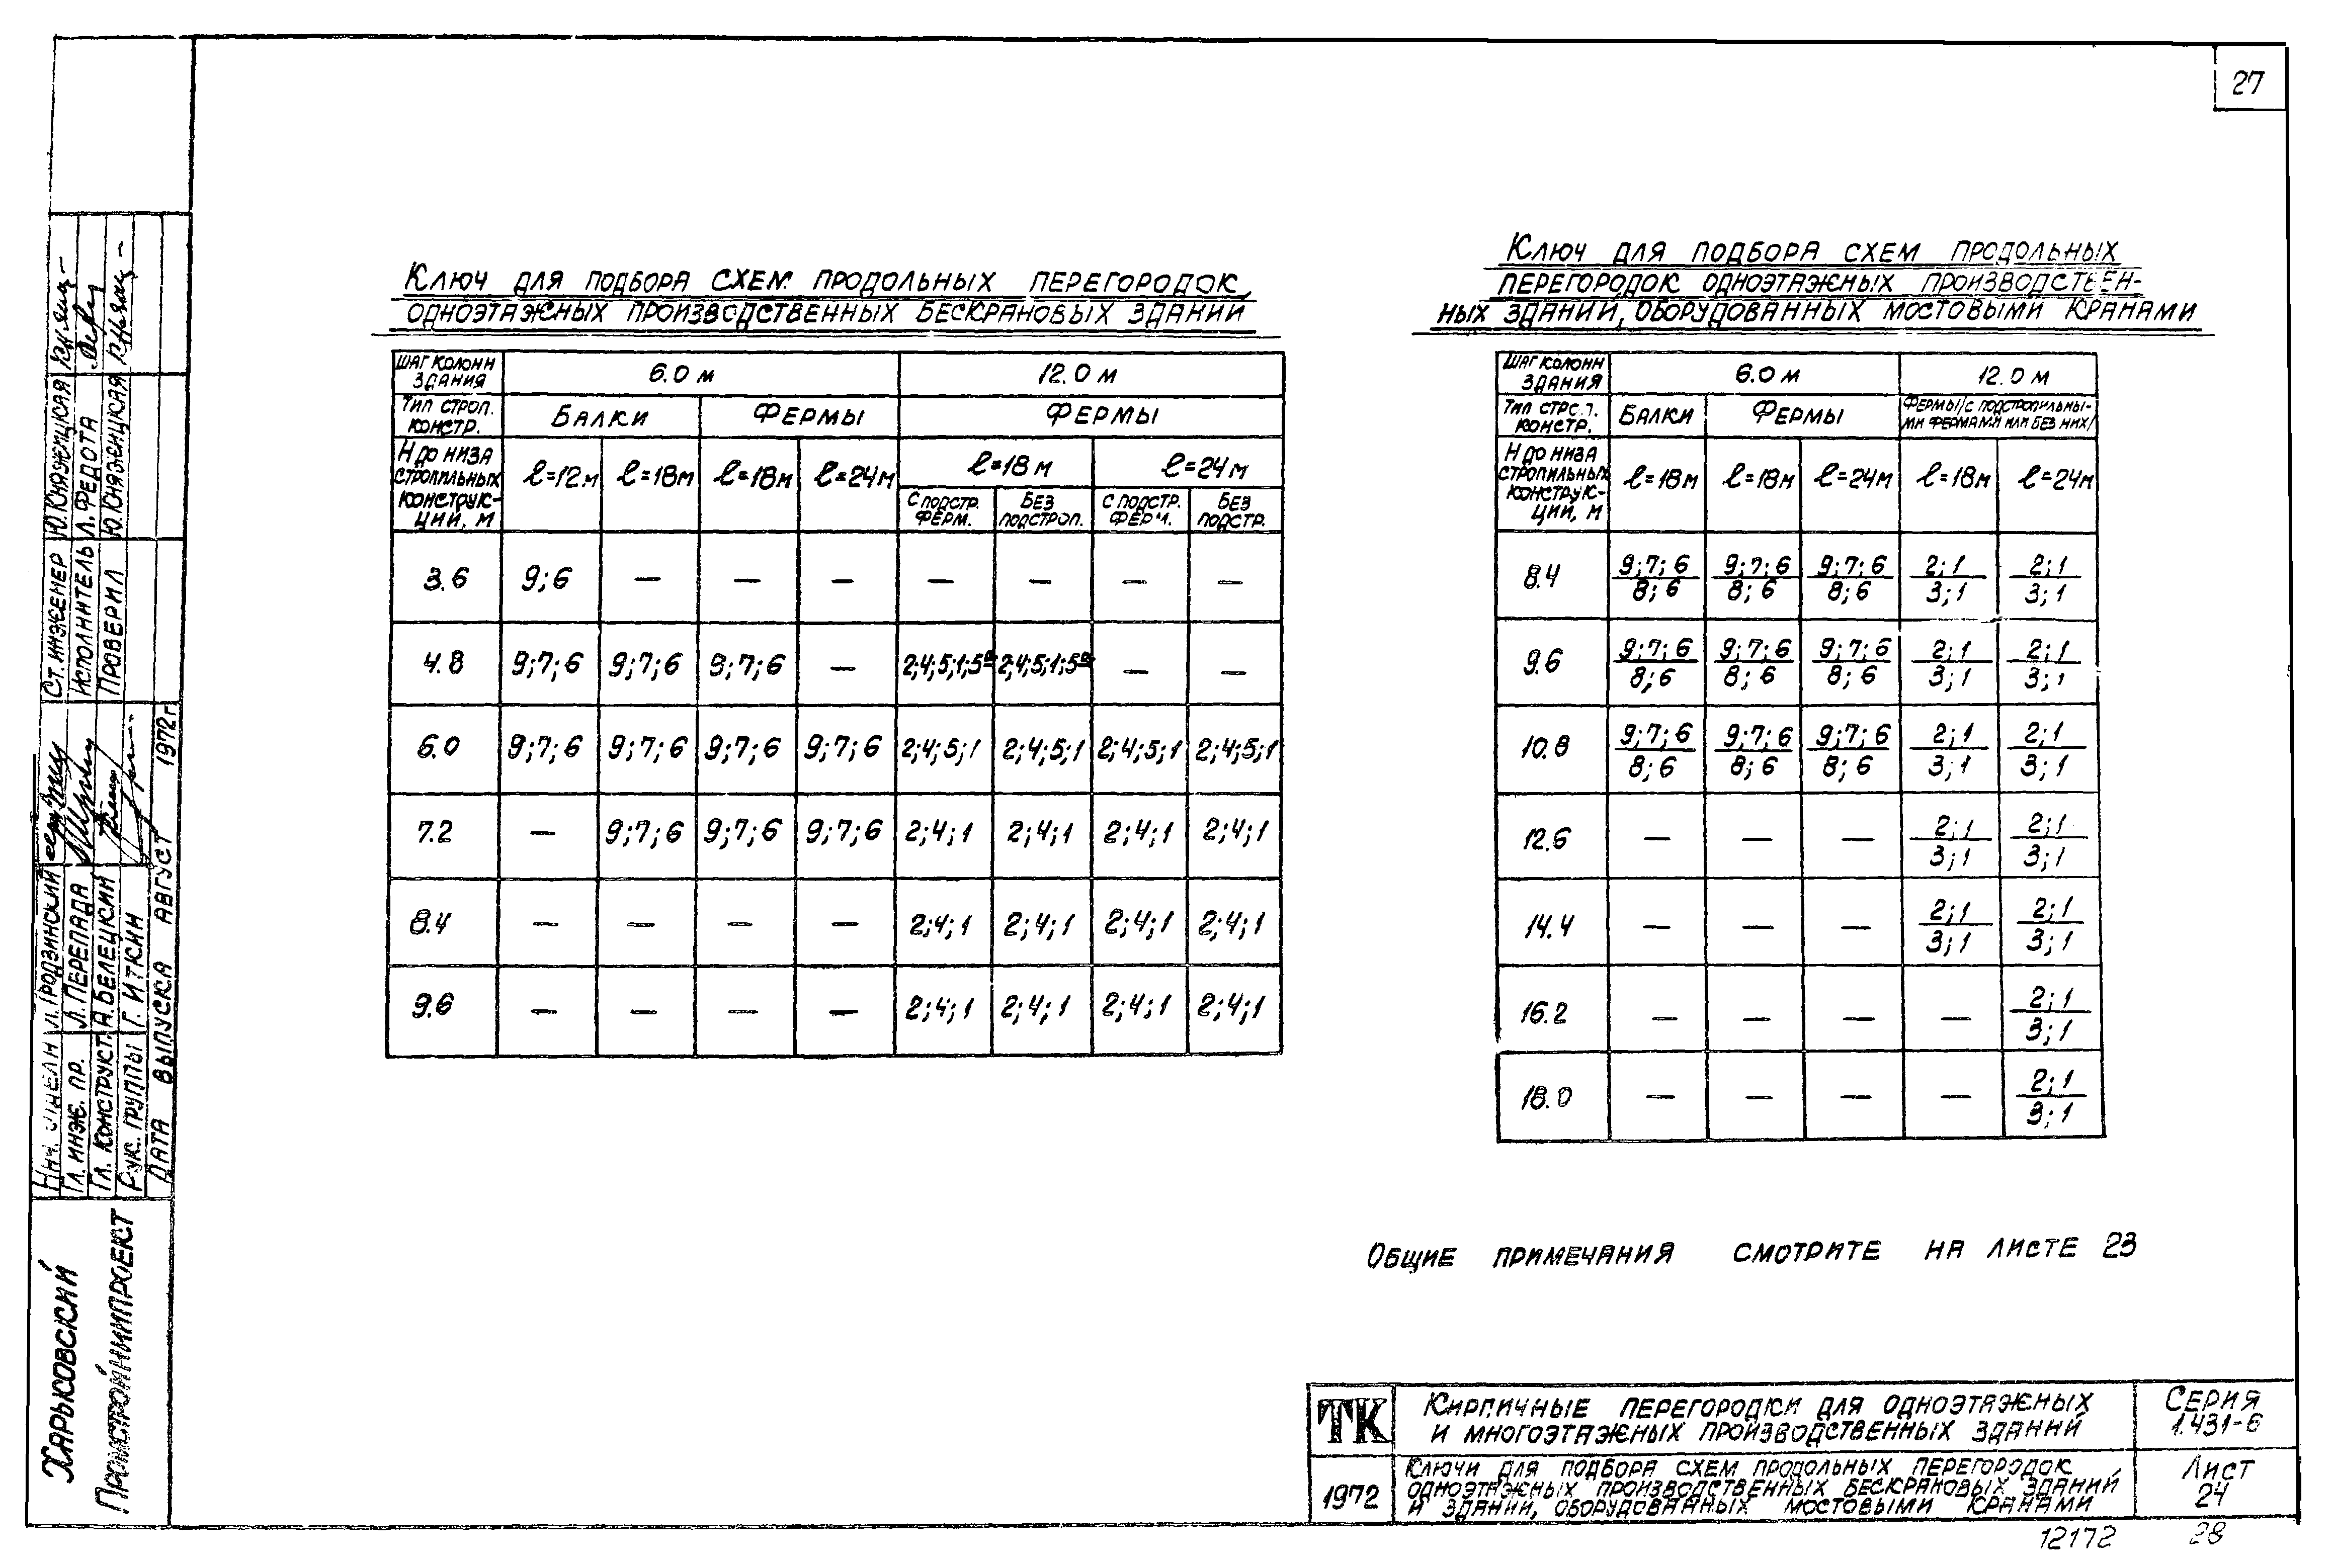 27
Ключ для подбора схем продольных перегородок,
одноэтажных производственных бескрановых зданий
Шаг колонн здания | 6.0 м | 12.0 м
Тип строп. констр. | Балки | Фермы | Фермы
H до низа стропильных конструкций, м | ℓ=12м | ℓ=18м | ℓ=18м | ℓ=24м | ℓ=18м | ℓ=24м
С подстр. ферм. | Без подстроп. | С подстр. ферм. | Без подстр.
3.6 | 9;6 | — | — | — | — | — | — | —
4.8 | 9;7;6 | 9;7;6 | 9;7;6 | — | 2;4;5;1;5а | 2;4;5;1;5а | — | —
6.0 | 9;7;6 | 9;7;6 | 9;7;6 | 9;7;6 | 2;4;5;1 | 2;4;5;1 | 2;4;5;1 | 2;4;5;1
7.2 | — | 9;7;6 | 9;7;6 | 9;7;6 | 2;4;1 | 2;4;1 | 2;4;1 | 2;4;1
8.4 | — | — | — | — | 2;4;1 | 2;4;1 | 2;4;1 | 2;4;1
9.6 | — | — | — | — | 2;4;1 | 2;4;1 | 2;4;1 | 2;4;1
Ключ для подбора схем продольных
перегородок одноэтажных производствен-
ных зданий, оборудованных мостовыми кранами
Шаг колонн здания | 6.0 м | 12.0 м
Тип строп. констр. | Балки | Фермы | Фермы /с подстропильны-
ми фермами или без них/
H до низа стропильных конструк-ций, м | ℓ=18м | ℓ=18м | ℓ=24м | ℓ=18м | ℓ=24м
8.4 | 9;7;6 / 8;6 | 9;7;6 / 8;6 | 9;7;6 / 8;6 | 2;1 / 3;1 | 2;1 / 3;1
9.6 | 9;7;6 / 8;6 | 9;7;6 / 8;6 | 9;7;6 / 8;6 | 2;1 / 3;1 | 2;1 / 3;1
10.8 | 9;7;6 / 8;6 | 9;7;6 / 8;6 | 9;7;6 / 8;6 | 2;1 / 3;1 | 2;1 / 3;1
12.6 | — | — | — | 2;1 / 3;1 | 2;1 / 3;1
14.4 | — | — | — | 2;1 / 3;1 | 2;1 / 3;1
16.2 | — | — | — | — | 2;1 / 3;1
18.0 | — | — | — | — | 2;1 / 3;1
Общие примечания смотрите на листе 23
ТК
Кирпичные перегородки для одноэтажных
и многоэтажных производственных зданий
Серия
1.431-6
1972
Ключи для подбора схем продольных перегородок
одноэтажных производственных бескрановых зданий
и зданий, оборудованных мостовыми кранами
Лист
24
12172 28
Харьковский
Промстройниипроект
Нач. отдела Л. Гродзинский
Гл. инж. пр. Л. Перепада
Гл. конструкт. А. Белецкий
Рук. группы Г. Иткин
Дата выпуска август 1972г.
Ст. инженер Ю. Княжицкая
Исполнитель Л. Федота
Проверил Ю. Княжицкая